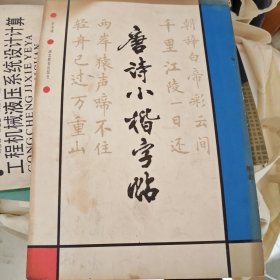 朝辞白帝彩云间
千里江陵一日还
两岸猿声啼不住
轻舟已过万重山
唐诗小楷字帖
工程机械液压系统设计计算